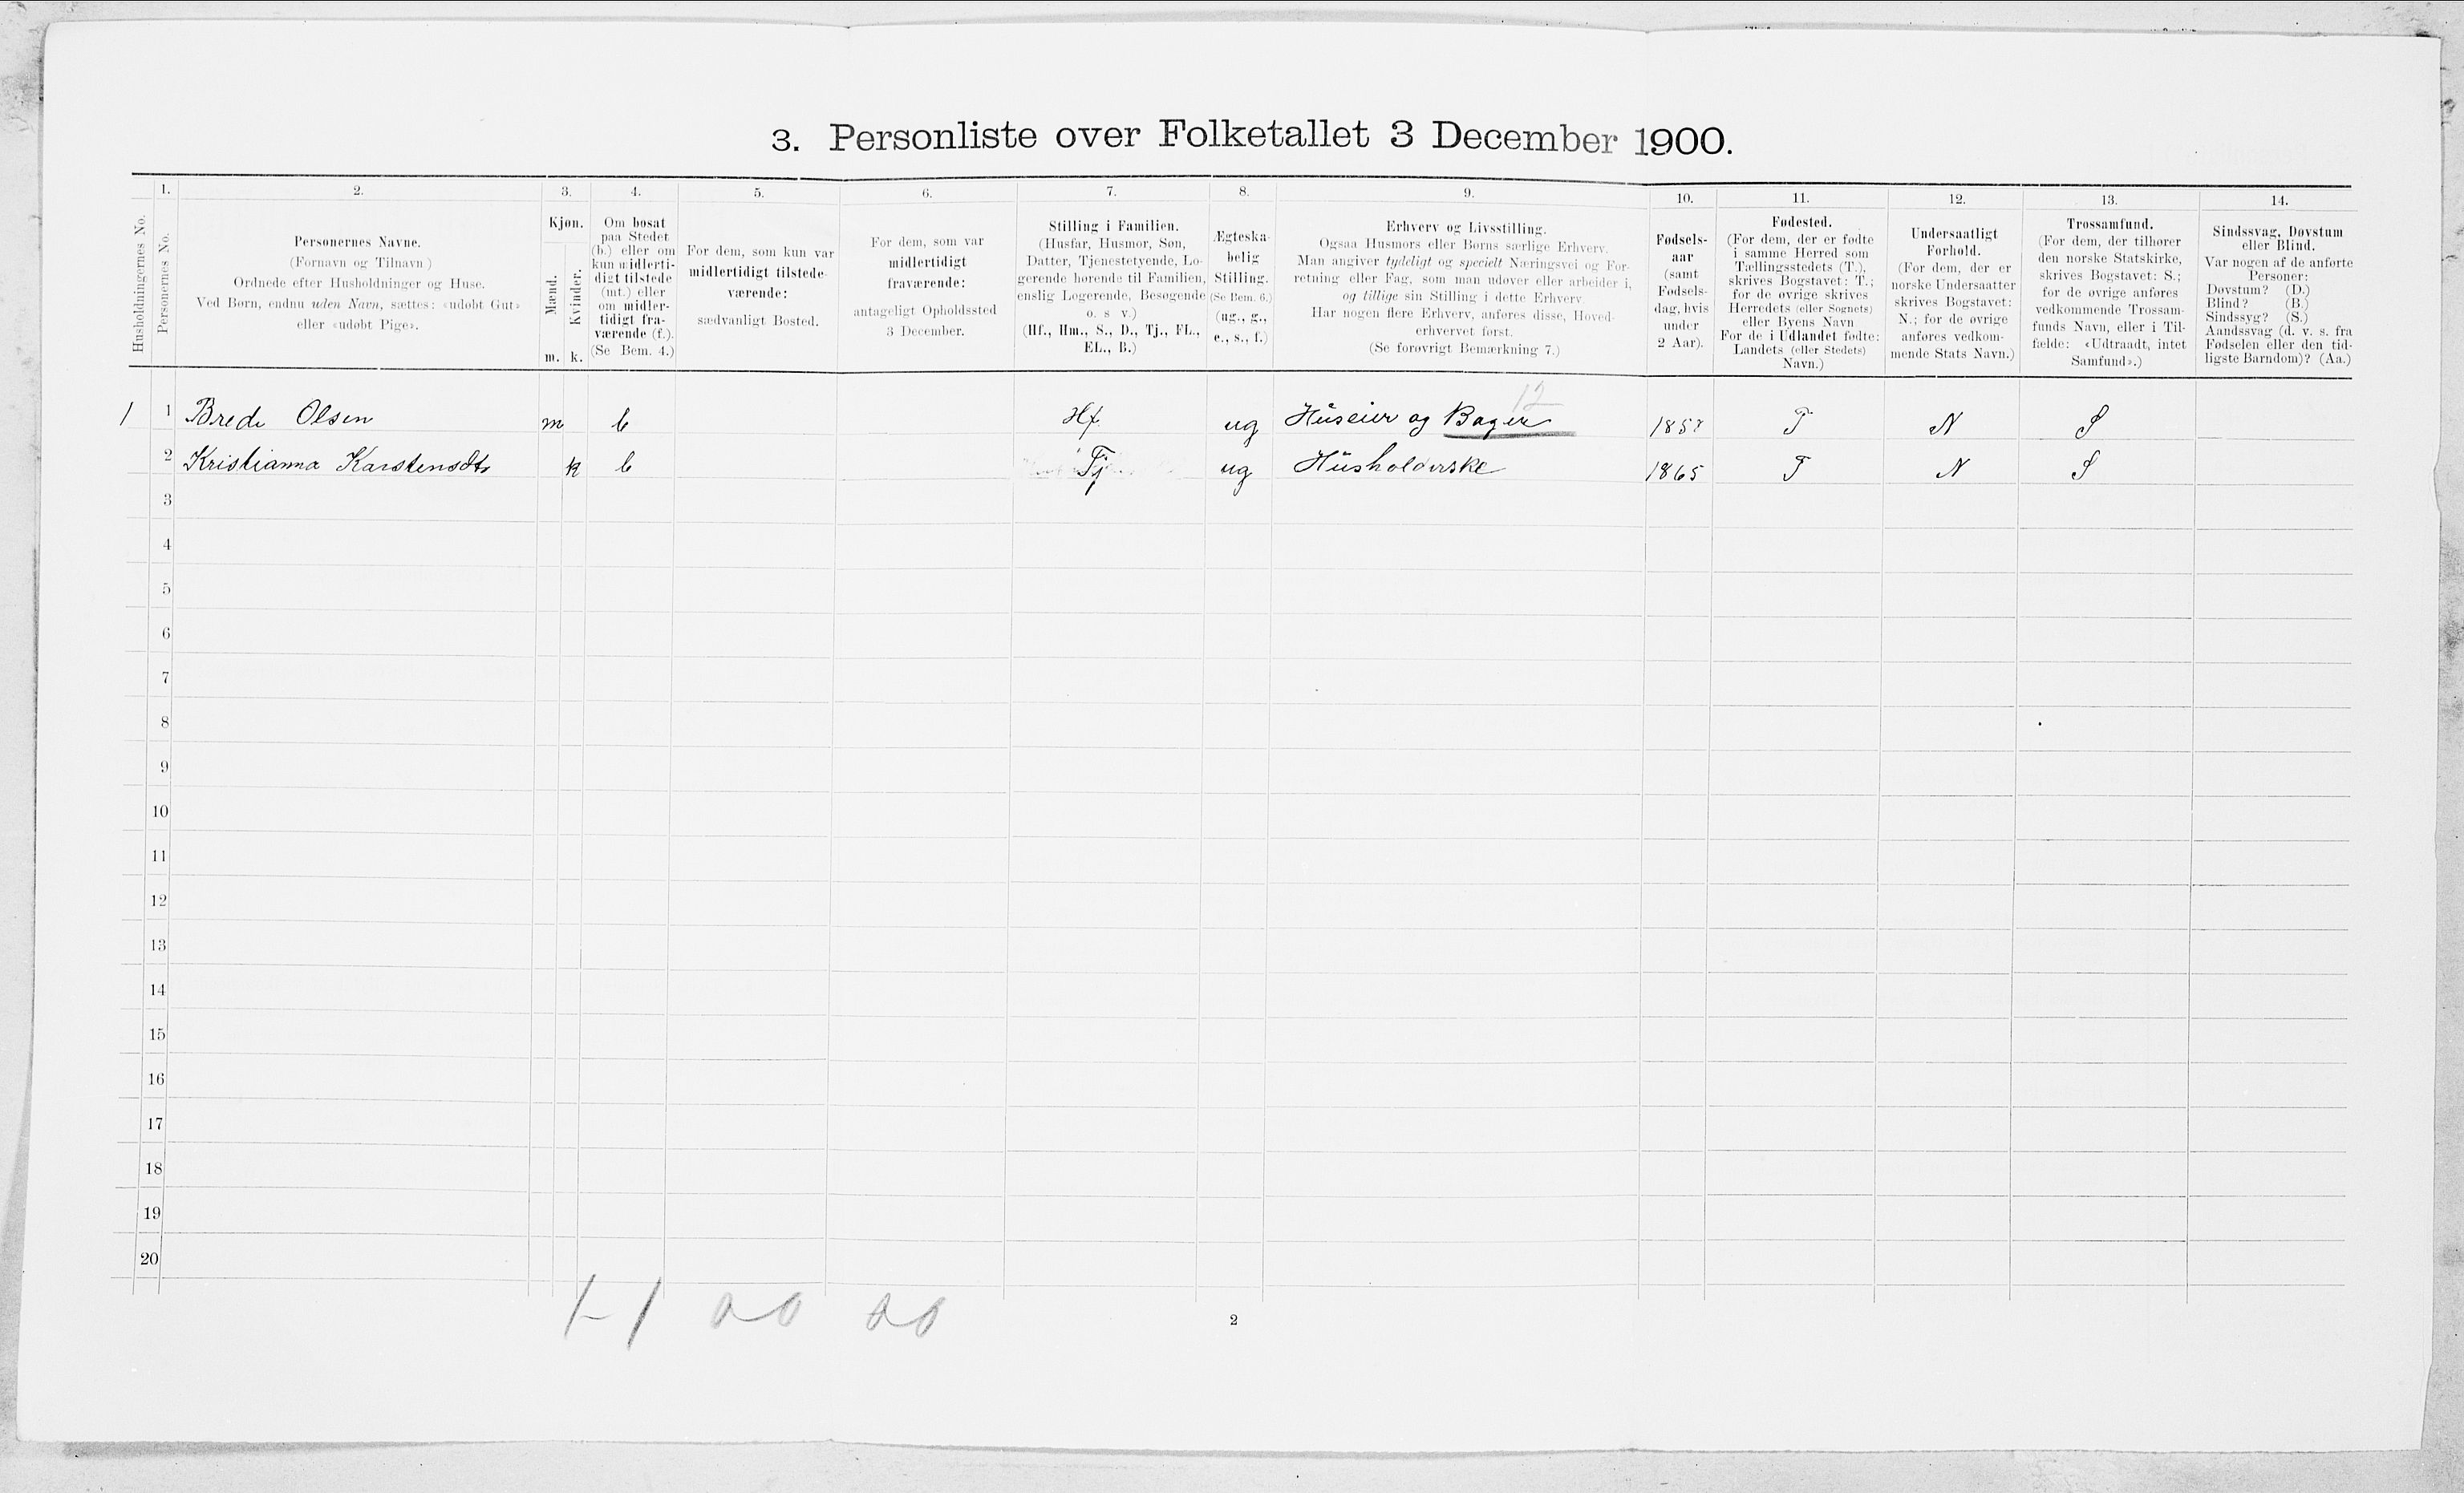 3. Personliste over Folketallet 3 December 1900.
1. 2. 3. 4. 5. 6. 7. 8. 9. 10. 11. 12. 13. 14.
Husholdningernes No.
Personernes No.
Personernes Navne.
(Fornavn og Tilnavn)
Ordnede efter Husholdninger og Huse.
Ved Børn, endnu uden Navn, sættes: «udøbt Gut»
eller «udøbt Pige».
Kjøn.
Mænd.
Kvinder.
m. k.
Om bosat
paa Stedet
(b.) eller om
kun midlerti-
digt tilstede
(mt.) eller
om midler-
tidigt fra-
værende (f.).
(Se Bem. 4.)
For dem, som kun var
midlertidigt tilstede-
værende:
sædvanligt Bosted.
For dem, som var
midlertidigt
fraværende:
antageligt Opholdssted
3 December.
Stilling i Familien.
(Husfar, Husmor, Søn,
Datter, Tjenestetyende, Lo-
gerende hørende til Familien,
enslig Logerende, Besøgende
o. s v.)
(Hf., Hm., S., D., Tj., FL.,
EL., B.)
Ægteska-
belig
Stilling.
(Se Bem. 6.)
(ug., g.,
e., s., f.)
Erhverv og Livsstilling.
Ogsaa Husmors eller Børns særlige Erhverv.
Man angiver tydeligt og specielt Næringsvei og For-
retning eller Fag, som man udøver eller arbeider i,
og tillige sin Stilling i dette Erhverv.
Har nogen flere Erhverv, anføres disse, Hoved-
erhvervet først.
(Se forøvrigt Bemærkning 7.)
Fødsels-
aar
(samt
Fødsels-
dag, hvis
under
2 Aar).
Fødested.
(For dem, der er fødte
i samme Herred som
Tællingsstedets (T.),
skrives Bogstavet: T.;
for de øvrige skrives
Herredets (eller Sognets)
eller Byens Navn
For de i Udlandet fødte:
Landets (eller Stedets)
Navn.)
Undersaatligt
Forhold.
(For dem, der er
norske Undersaatter
skrives Bogstavet:
N.; for de øvrige
anføres vedkom-
mende Stats Navn.)
Trossamfund.
(For dem, der tilhører
den norske Statskirke,
skrives Bogstavet: S.;
for de øvrige anføres
vedkommende Trossam-
funds Navn, eller i Til-
fælde: «Udtraadt, intet
Samfund».)
Sindssvag, Døvstum
eller Blind.
Var nogen af de anførte
Personer:
Døvstum? (D.)
Blind? (B.)
Sindssyg? (S.)
Aandssvag (d. v. s. fra
Fødselen eller den tid-
ligste Barndom)? (Aa.)
12
1 1 Brede Olsen m b Hf. ug Huseier og Bager 1857 T N S
2 Kristianna Karstensdtr k b Tj ug Husholderske 1865 T N S
3
4
5
6
7
8
9
10
11
12
13
14
15
16
17
18
19
20
1-1 00 00
2